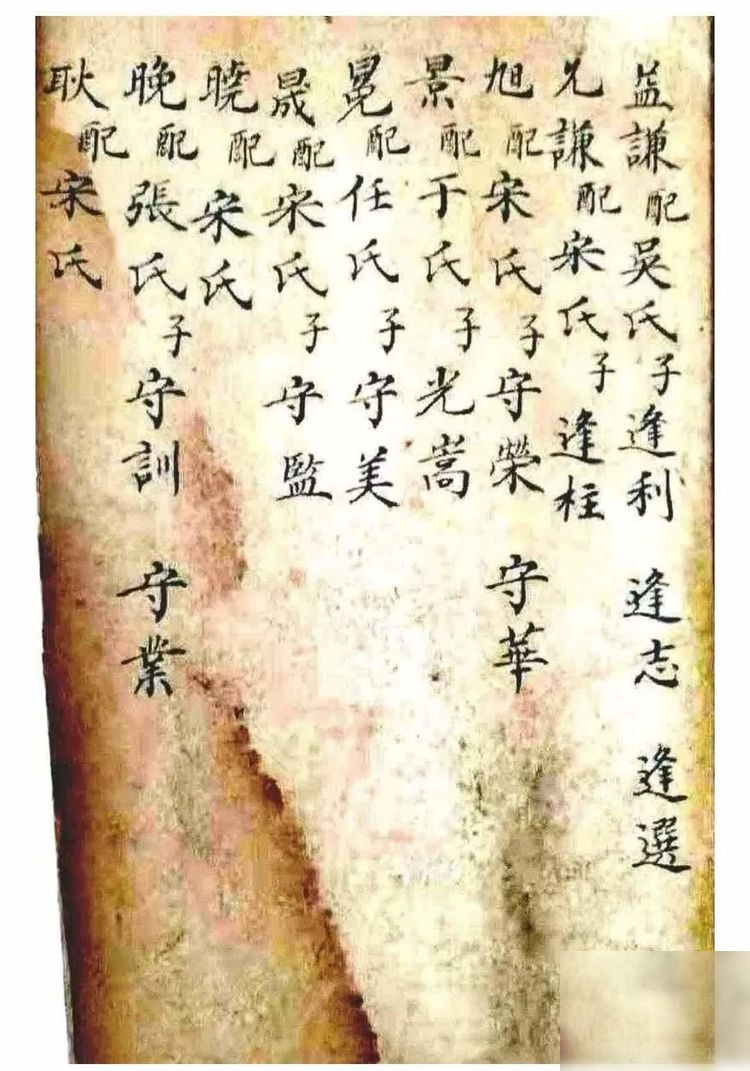 益謙配吳氏子逢利 逢志 逢選
允謙配宋氏子逢柱
旭配宋氏子守榮 守華
景配于氏子光嵩
冕配任氏子守美
晟配宋氏子守監
曉配宋氏
晚配張氏子守訓 守業
耿配宋氏